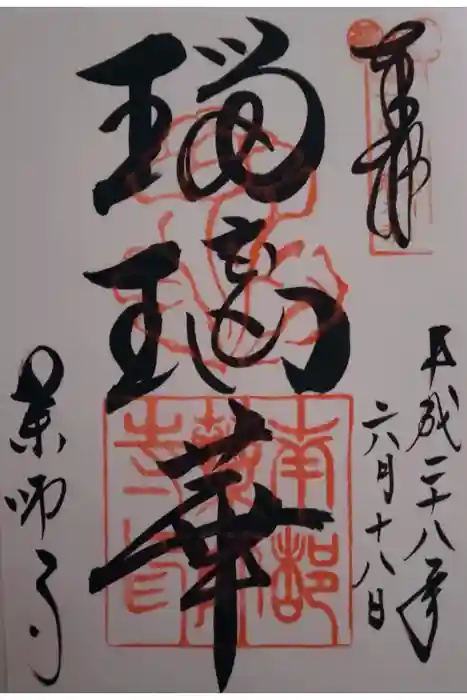 奉拝
平成二十八年
六月十八日
瑠璃華
薬師寺
南都
薬師寺印